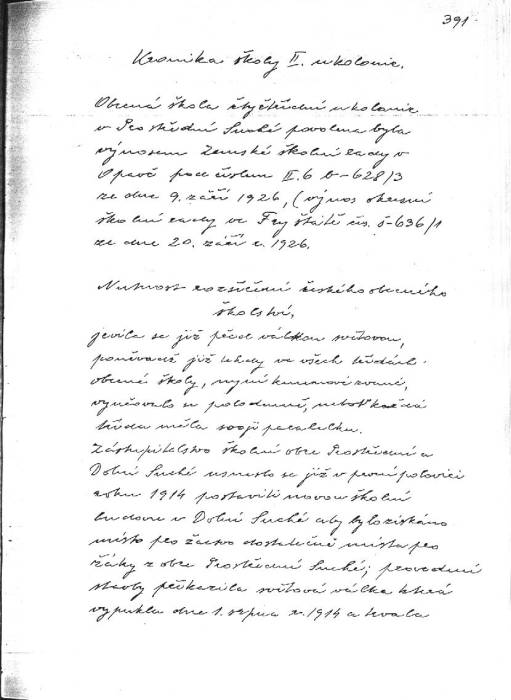 391
Kronika školy II. u kolonie.
Obecná škola čtyřtřídní u kolonie
v Prostřední Suché povolena byla
výnosem Zemské školní rady v
Opavě pod číslem II. 6 b-628/3
ze dne 9. září 1926, (výnos okresní
školní rady ve Fryštátě čís. š-636/1
ze dne 20. září r. 1926.
Nutnost rozšíření českého obecného
školství,
jevila se již před válkou světovou,
poněvadž již tehdy ve všech třídách
obecné školy, nyní zvané,
vyučovalo se polodenně, neboť každá
třída měla svoji paralelku.
Zastupitelstvo školní obce Prostřední a
Dolní Suché usneslo se již v první polovici
roku 1914 postaviti novou školní
budovu v Dolní Suché aby bylo získáno
místo pro žactvo dostatečně místa pro
žáky z obce Prostřední Suché; provedení
stavby překazila světová válka která
vypukla dne 1. srpna r. 1914 a trvala